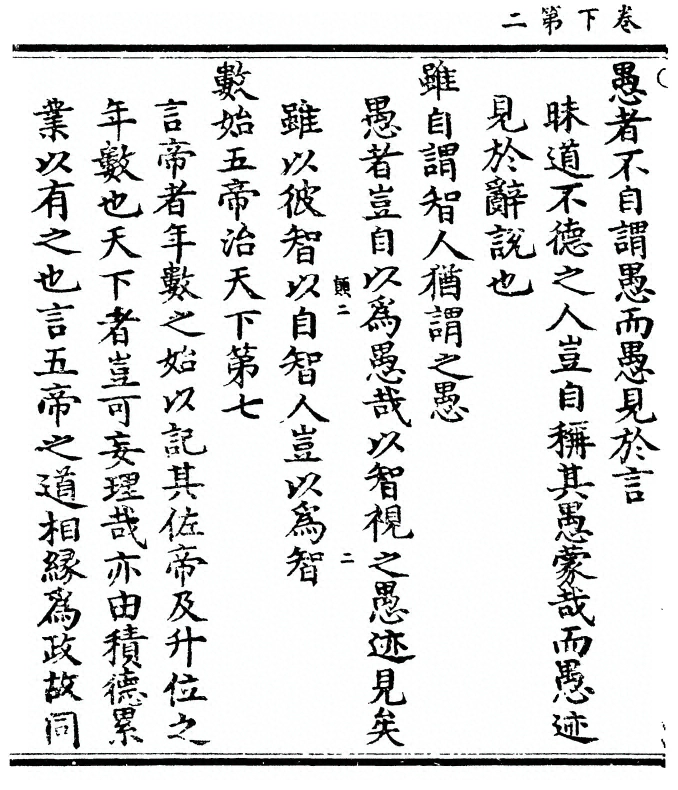 卷下第二
愚者不自謂愚而愚見於言
昧道不德之人豈自稱其愚蒙哉而愚迹
見於辭說也
雖自謂智人猶謂之愚
愚者豈自以爲愚哉以智視之愚迹見矣
雖以彼智以自智人豈以爲智
數始五帝治天下第七
言帝者年數之始以記其佐帝及升位之
年數也天下者豈可妄理哉亦由積德累
業以有之也言五帝之道相緣爲政故同